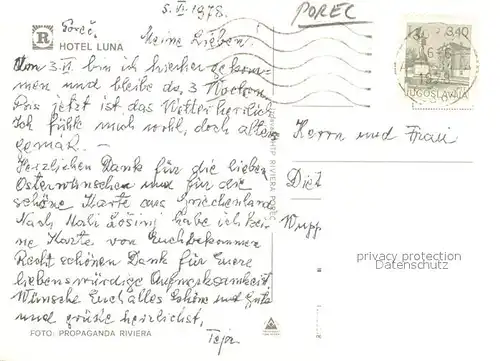 5. VI. 1978.
POREC
Poreč,
R
HOTEL LUNA
Meine Lieben.
Am 3. VI. bin ich hierher gekom-
men und bleibe da, 3 Wochen
Bis jetzt ist das Wetter herrlich
Ich fühle mich wohl, doch alters
gemäß. —
Herzlichen Dank für die lieben
Osterwünschen und für die
schöne Karte aus Griechenland
Nach Mali Lošinj habe ich kei-
ne Karte von Euch bekommen
Recht schönen Dank für Euere
liebenswürdige Aufmerksamkeit.
Wünsche Euch alles Schöne und Gute
und grüße herzlichst,
FOTO: PROPAGANDA RIVIERA
RIVIERA POREČ
3,40
JUGOSLAVIJA
Herrn und Frau
Diet
Wupp
privacy protection
Datenschutz